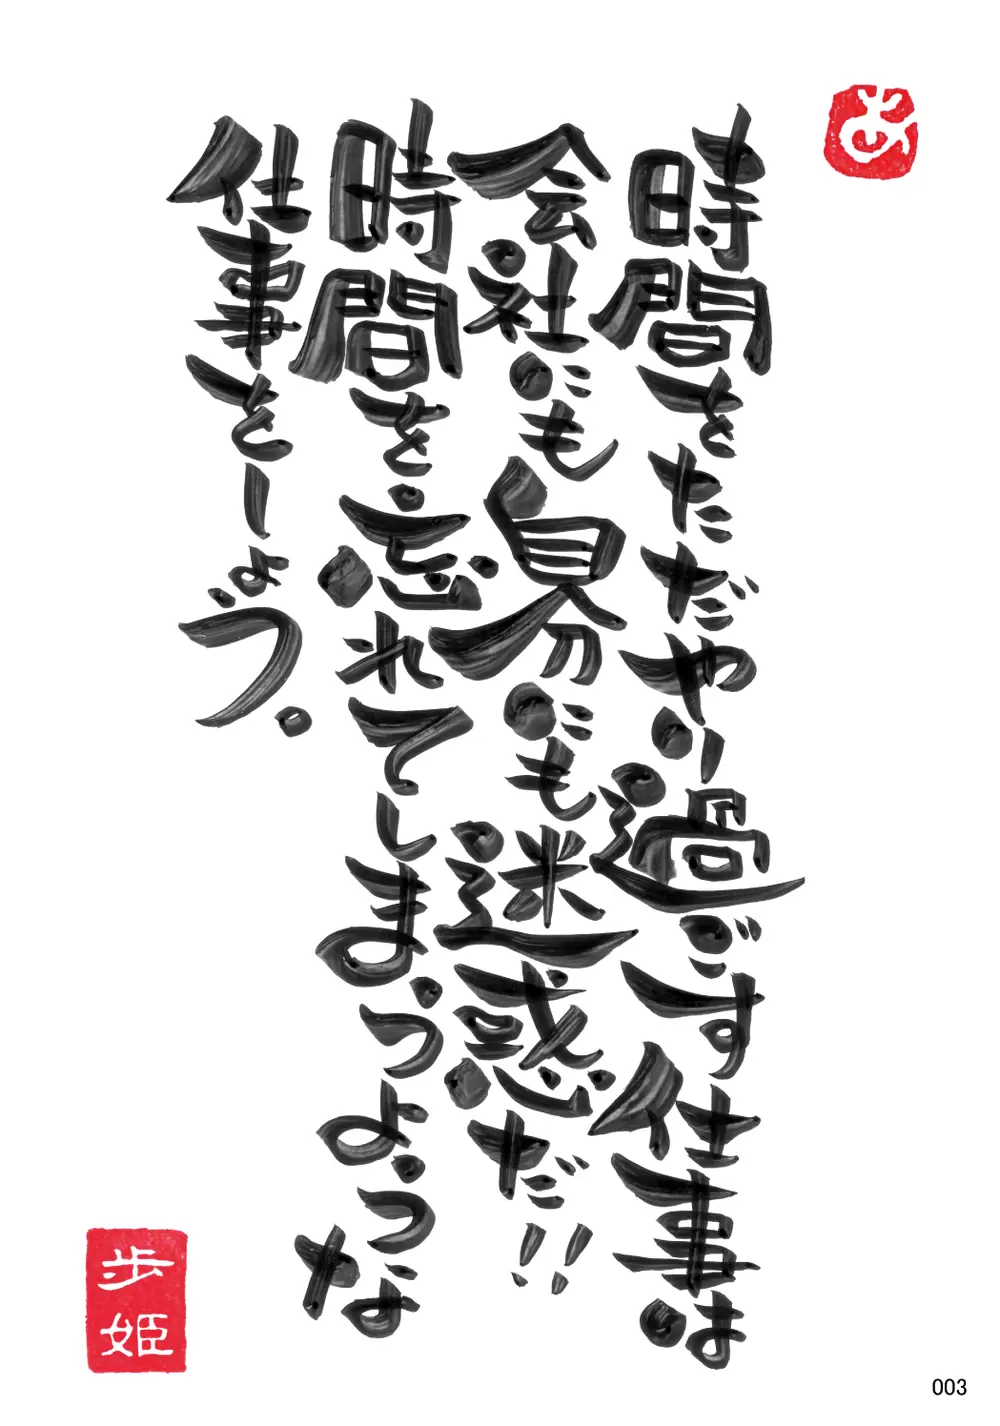 あ
時間をただただやり過ごす仕事は
会社にも自分にも迷惑だ!!
時間を忘れてしまうような
仕事をしよう。
歩姫
003